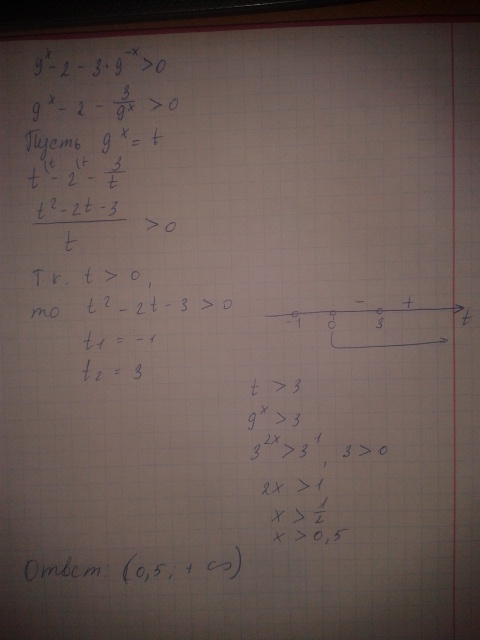 9^x - 2 - 3 · 9^-x > 0
9^x - 2 - 3/9^x > 0
Пусть 9^x = t
t^(t - 2^(t - 3/t
(t² - 2t - 3)/t > 0
Т.к. t > 0,
то t² - 2t - 3 > 0
t₁ = -1
t₂ = 3
- +
-1 0 3 t
t > 3
9^x > 3
3^2x > 3^1, 3 > 0
2x > 1
x > 1/2
x > 0,5
Ответ: (0,5; + ∞)